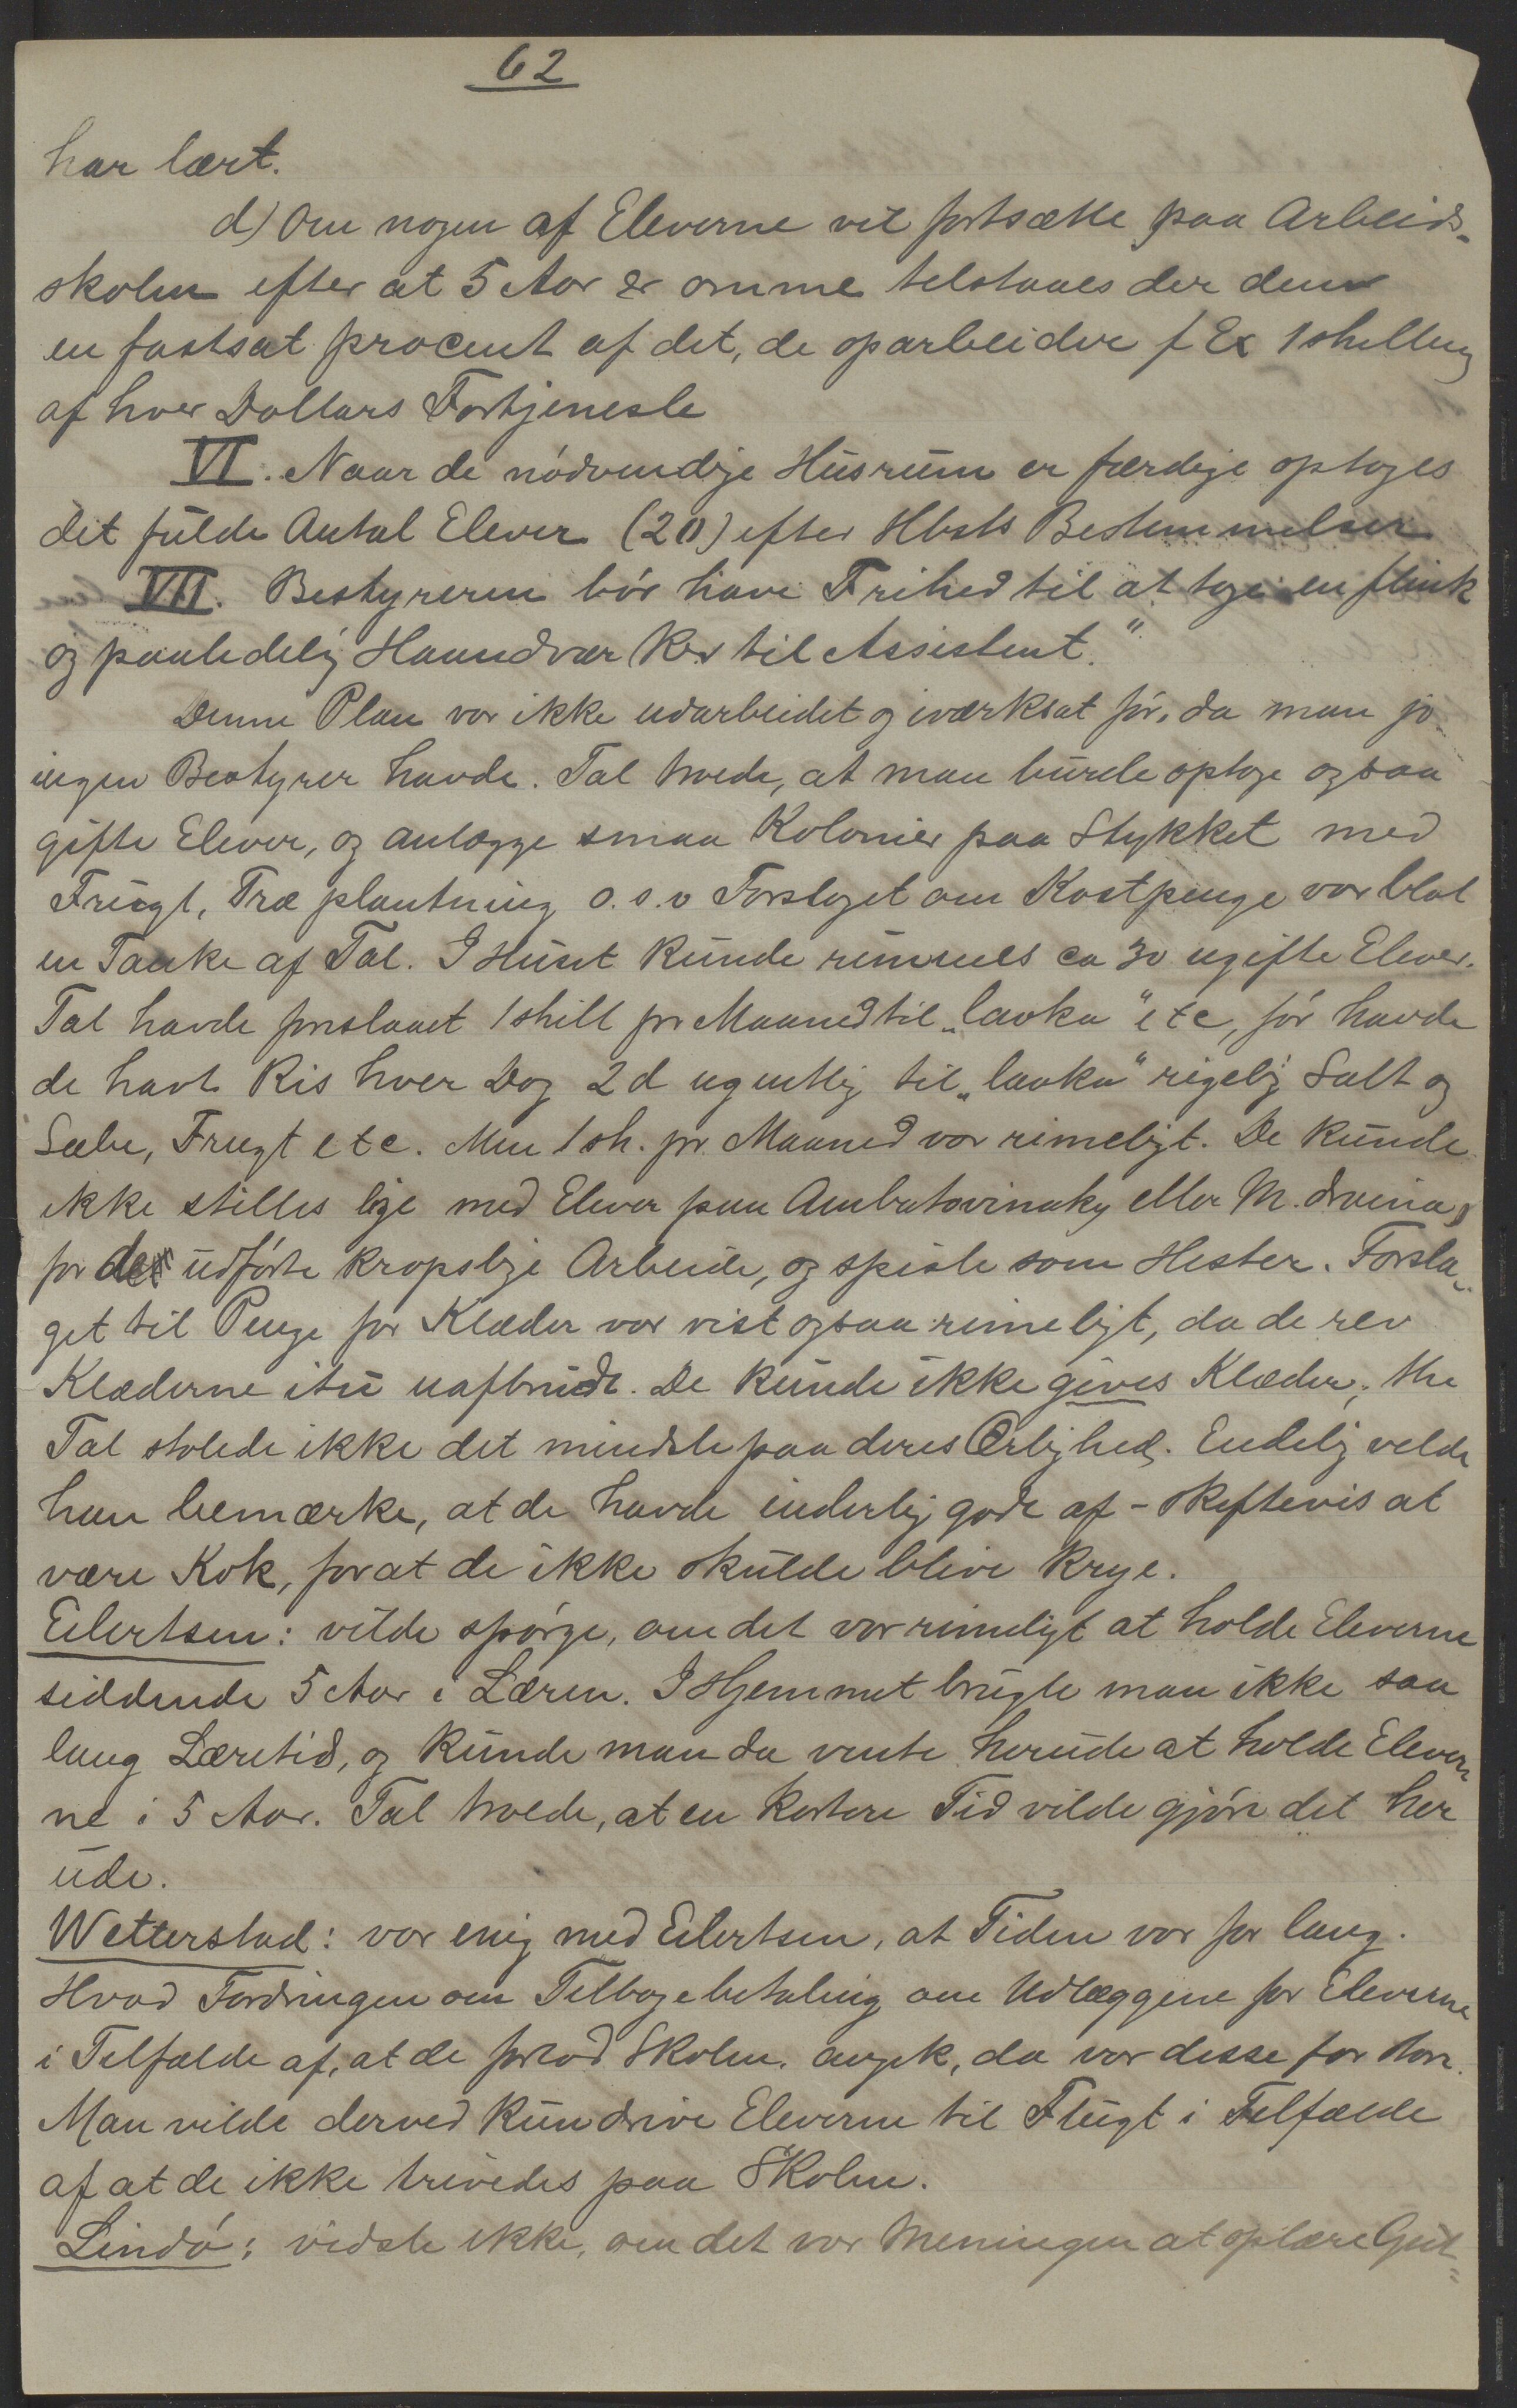 62
har lært.
d) Om nogen af Eleverne vil fortsætte paa Arbeids-
skolen efter at 5 Aar er omme tilstaaes der dem
en fastsat procent af det, de oparbeider f Ex 1 shilling
af hver Dollars Fortjeneste
VI. Naar de nødvendige Husrum er færdige optages
det fulde Antal Elever (20) efter Hbsts Bestemmelser
VII. Bestyreren bør have Frihed til at tage en flink
og paalidelig Haandværker til Assistent."
Denne Plan var ikke udarbeidet og iværksat før, da man jo
ingen Bestyrer havde. Tal troede, at man burde optage ogsaa
gifte Elever, og anlægge smaa Kolonier paa Stykket med
Frugt, Træplantning o.s.v Forslaget om Kostpenge var blot
en Tanke af Tal. I Huset kunde rummes ca 30 ugifte Elever.
Tal havde foreslaaet 1 shill pr Maaned til „laoka" etc, før havde
de havt Ris hver Dag 2 d ugentlig til „laoka" rigelig Salt og
Sæbe, Frugt etc. Men 1 sh. pr. Maaned var rimeligt. De kunde
ikke stilles lige med Elever paa Ambatovinaky eller M.draina,
for de udførte kropslige Arbeide, og spiste som Hester. Forsla-
get til Penge for Klæder var vist ogsaa rimeligt, da de rev
Klæderne itu uafbrudt. De kunde ikke gives Klæder; thi
Tal stolede ikke det mindste paa deres Ærlighed. Endelig vilde
han bemærke, at de havde inderlig godt af - skiftevis at
være Kok, for at de ikke skulde blive krye.
Eilertsen: vilde spørge, om det var rimeligt at holde Eleverne
siddende 5 Aar i Læren. I Hjemmet brugte man ikke saa
lang Læretid, og kunde man da vente herude at holde Elever-
ne i 5 Aar. Tal troede, at en kortere Tid vilde gjøre det her
ude.
Wetterstad: var enig med Eilertsen, at Tiden var for lang.
Hvad Fordringen om Tilbagebetaling om Udlæggene for Eleverne
i Tilfælde af, at de forlod Skolen, angik, da var disse for store.
Man vilde derved kun drive Eleverne til Flugt i Tilfælde
af at de ikke trivedes paa Skolen.
Lindø: vidste ikke, om det var Meningen at oplære Gut-